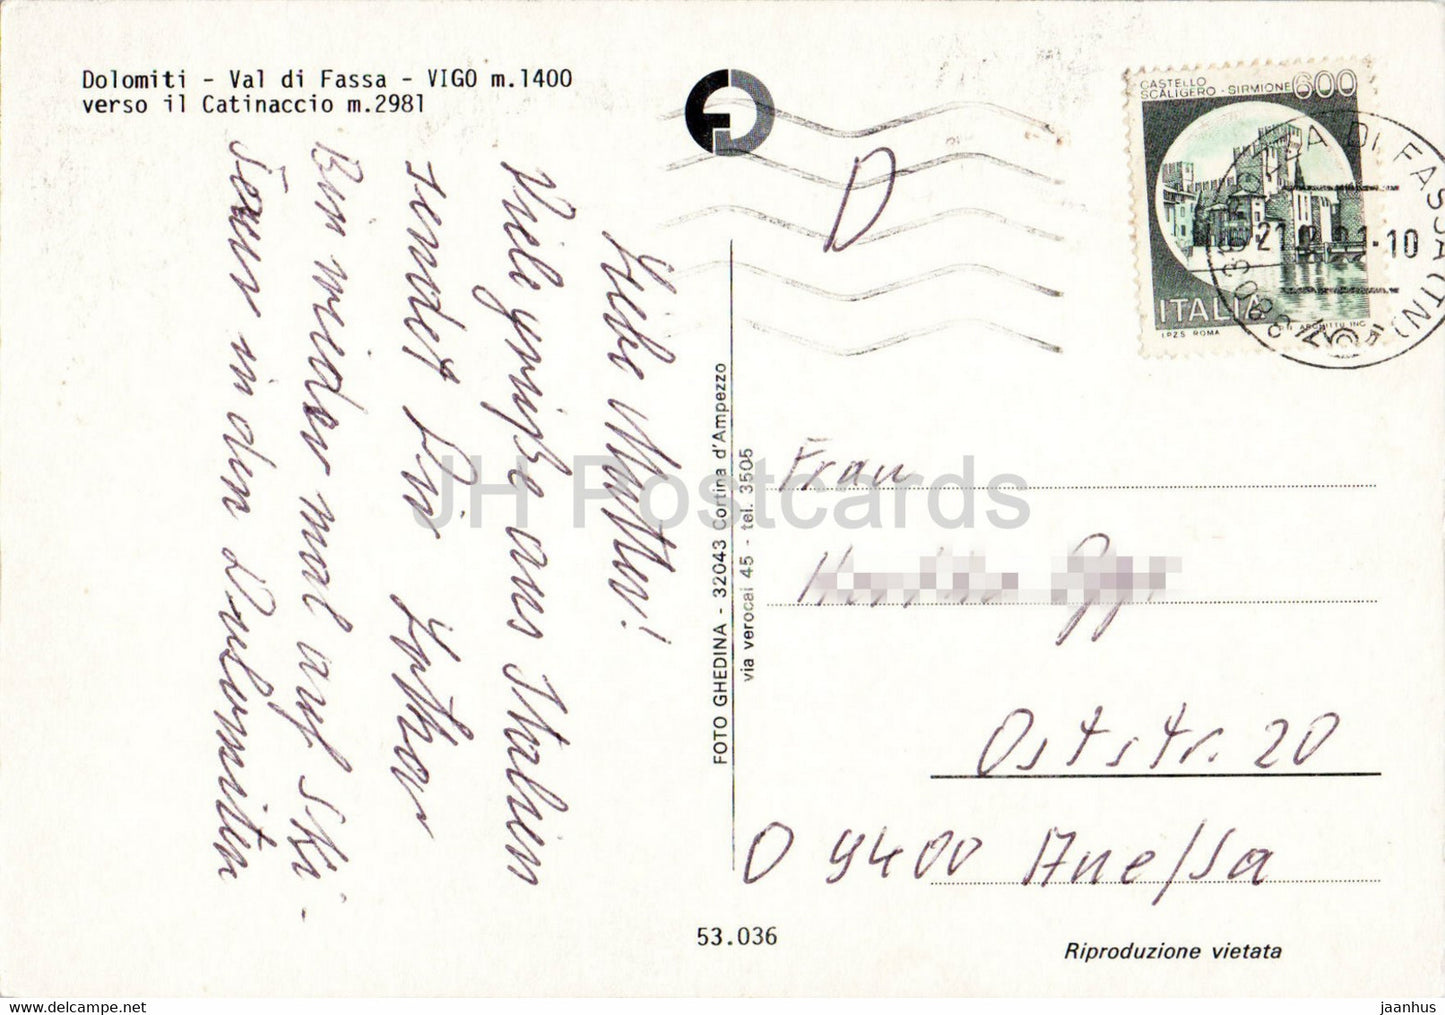 Dolomiti - Val di Fassa - VIGO m.1400
verso il Catinaccio m.2981
Liebe Mutter!
Viele Grüße aus Italien
sendet Dir Lothar
Bin wieder mal auf Ski-
Touren in den Dolomiten
FOTO GHEDINA - 32043 Cortina d'Ampezzo
via verocai 45 - tel. 3505
53.036
D
CASTELLO
SCALIGERO - SIRMIONE 600
ITALIA
I.P.Z.S. ROMA
DI FASSA (TN)
Frau
Oststr. 20
O 9400 Aue/Sa
Riproduzione vietata
JH Postcards
www.delcampe.net
jaanhus